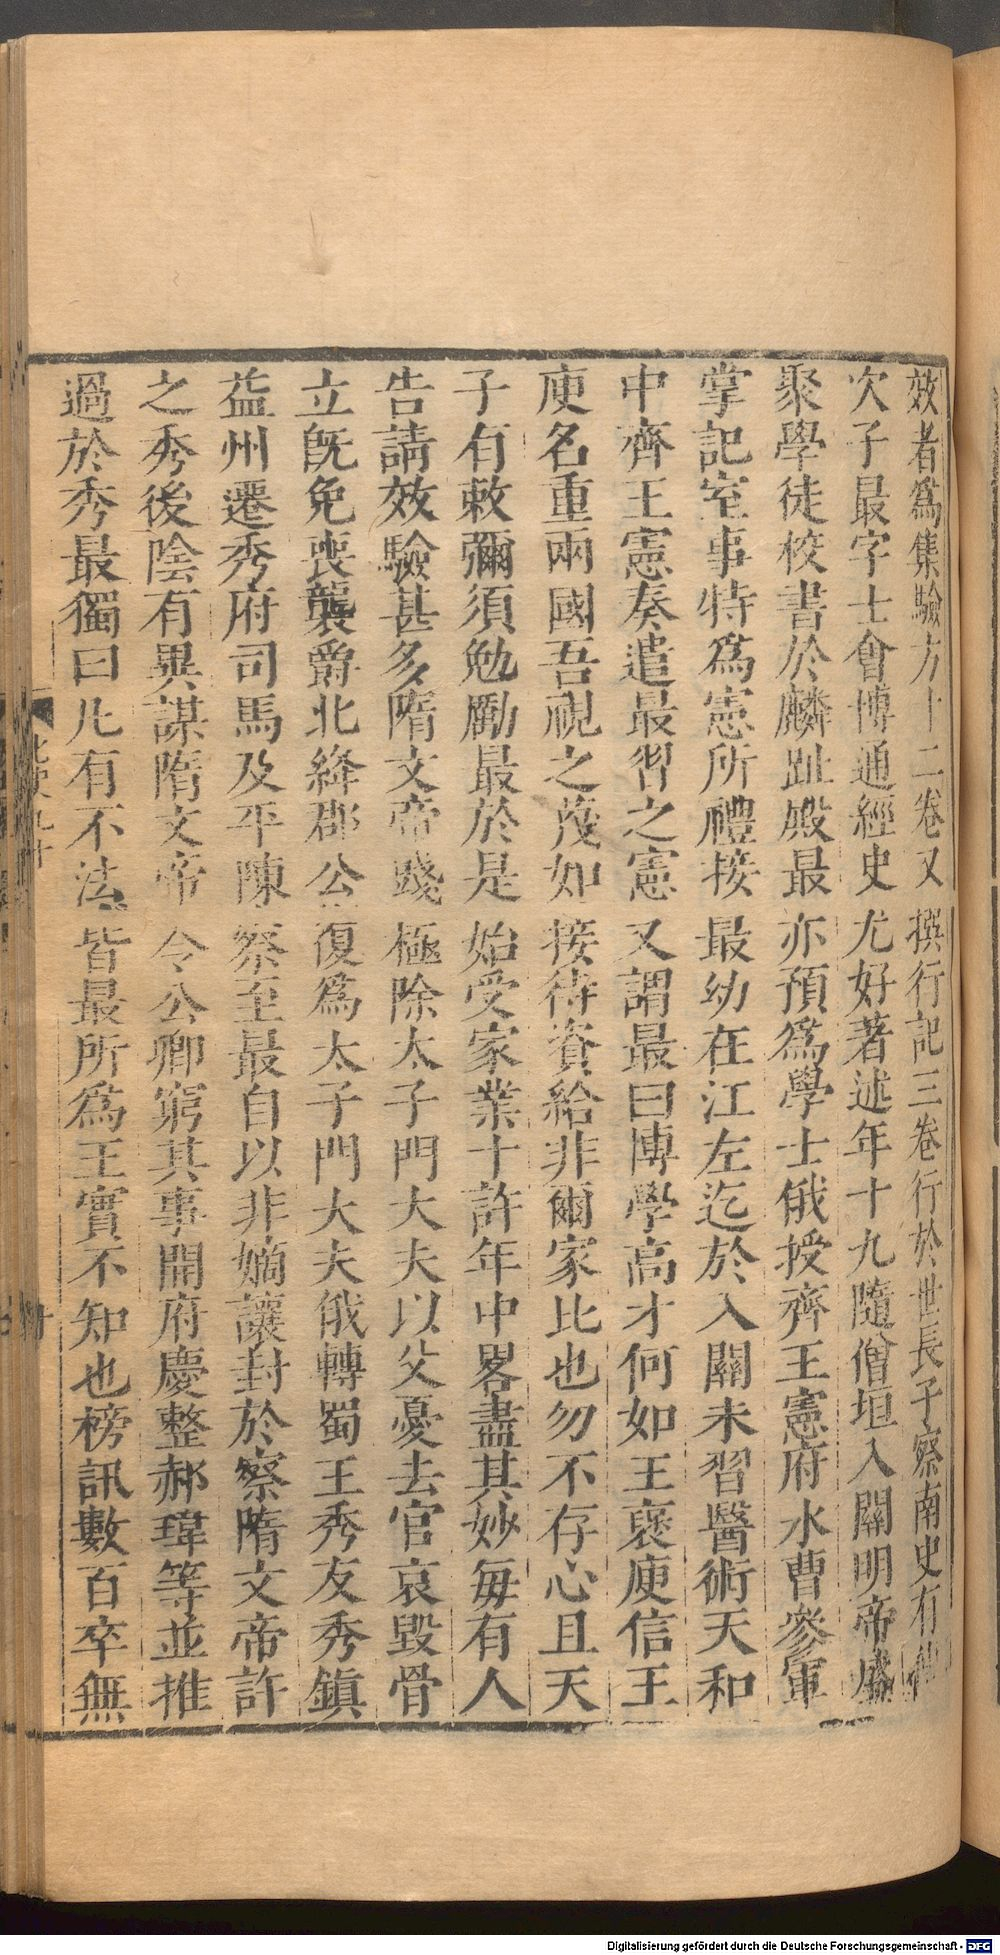 效者爲集驗方十二卷又撰行記三卷行於世長子察南史有傳
次子最字士會博通經史尤好著述年十九隨僧垣入關明帝盛
聚學徒校書於麟趾殿最亦預爲學士俄授齊王憲府水曹參軍
掌記室事特爲憲所禮接最幼在江左迄於入關未習醫術天和
中齊王憲奏遣最習之憲又謂最曰博學高才何如王褒庾信王
庾名重兩國吾視之蔑如接待資給非爾家比也勿不存心且天
子有敕彌須勉勵最於是始受家業十許年中畧盡其妙每有人
告請效驗甚多隋文帝踐極除太子門大夫以父憂去官哀毀骨
立旣免喪襲爵北絳郡公復爲太子門大夫俄轉蜀王秀友秀鎮
益州遷秀府司馬及平陳察至最自以非嫡讓封於察隋文帝許
之秀後陰有異謀隋文帝令公卿窮其事開府慶整郝瑋等並推
過於秀最獨曰凡有不法皆最所爲王實不知也榜訊數百卒無
北史九十
十
Digitalisierung gefördert durch die Deutsche Forschungsgemeinschaft - DFG